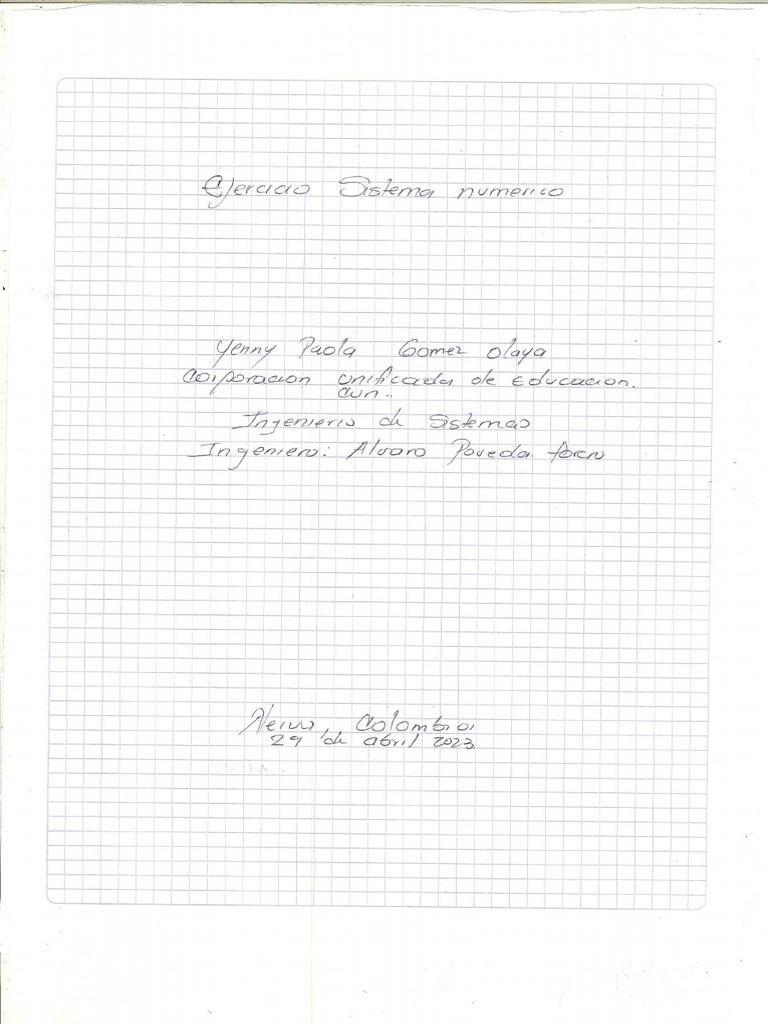 Ejercicio Sistema numerico
Yenny Paola Gomez Olaya
Corporacion Unificada de Educacion.
Cun.
Ingenieria de Sistemas
Ingeniero: Alvaro Poveda
Neiva, Colombia
29 de abril 2023.